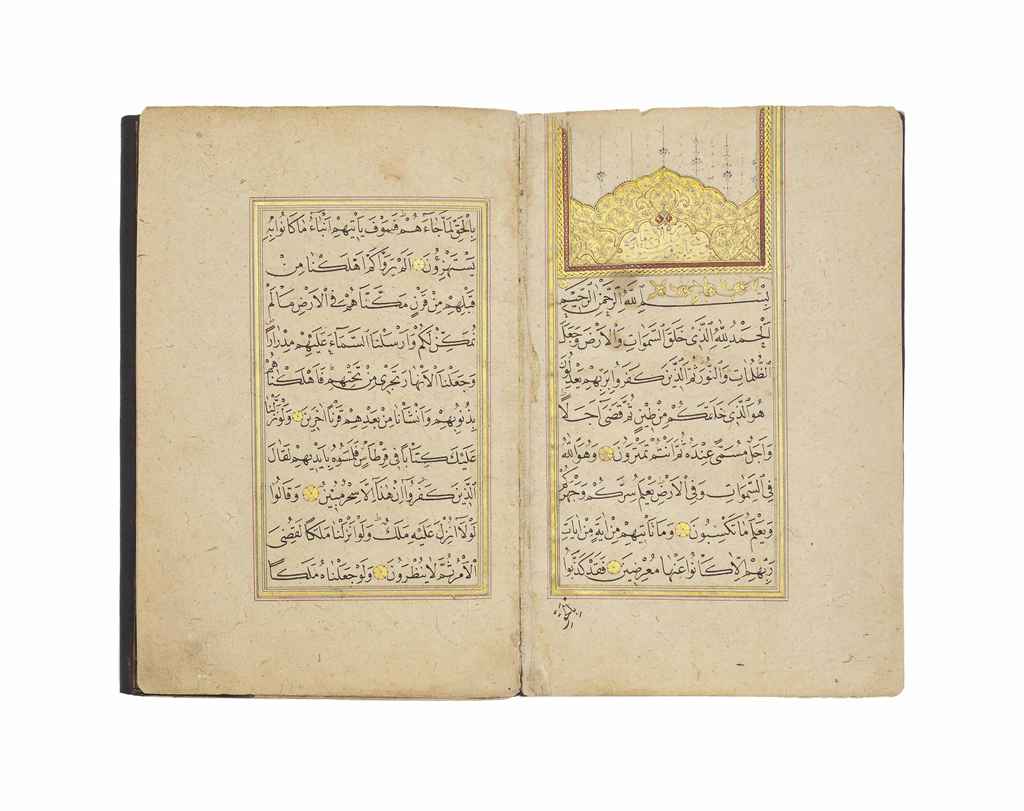 بِسْمِ اللّٰهِ الرَّحْمٰنِ الرَّحِيمِ
اَلْحَمْدُ لِلّٰهِ الَّذِى خَلَقَ السَّمٰوَاتِ وَالْاَرْضَ وَجَعَلَ
الظُّلُمَاتِ وَالنُّورَ ثُمَّ الَّذِينَ كَفَرُوا بِرَبِّهِمْ يَعْدِلُونَ
هُوَ الَّذِى خَلَقَكُمْ مِنْ طِينٍ ثُمَّ قَضٰى اَجَلًا
وَاَجَلٌ مُسَمًّى عِنْدَهُ ثُمَّ اَنْتُمْ تَمْتَرُونَ وَهُوَ اللّٰهُ
فِى السَّمٰوَاتِ وَفِى الْاَرْضِ يَعْلَمُ سِرَّكُمْ وَجَهْرَكُمْ
وَيَعْلَمُ مَا تَكْسِبُونَ وَمَا تَاْتِيهِمْ مِنْ اٰيَةٍ مِنْ اٰيَاتِ
رَبِّهِمْ اِلَّا كَانُوا عَنْهَا مُعْرِضِينَ فَقَدْ كَذَّبُوا
بِالْحَقِّ لَمَّا جَاءَهُمْ فَسَوْفَ يَاْتِيهِمْ اَنْبَاءُ مَا كَانُوا بِهِ
يَسْتَهْزِؤُنَ اَلَمْ يَرَوْا كَمْ اَهْلَكْنَا مِنْ
قَبْلِهِمْ مِنْ قَرْنٍ مَكَّنَّاهُمْ فِى الْاَرْضِ مَا لَمْ
نُمَكِّنْ لَكُمْ وَاَرْسَلْنَا السَّمَاءَ عَلَيْهِمْ مِدْرَارًا
وَجَعَلْنَا الْاَنْهَارَ تَجْرِى مِنْ تَحْتِهِمْ فَاَهْلَكْنَاهُمْ
بِذُنُوبِهِمْ وَاَنْشَاْنَا مِنْ بَعْدِهِمْ قَرْنًا اٰخَرِينَ وَلَوْ نَزَّلْنَا
عَلَيْكَ كِتَابًا فِى قِرْطَاسٍ فَلَمَسُوهُ بِاَيْدِيهِمْ لَقَالَ
الَّذِينَ كَفَرُوا اِنْ هٰذَا اِلَّا سِحْرٌ مُبِينٌ وَقَالُوا
لَوْلَا اُنْزِلَ عَلَيْهِ مَلَكٌ وَلَوْ اَنْزَلْنَا مَلَكًا لَقُضِىَ
الْاَمْرُ ثُمَّ لَا يُنْظَرُونَ وَلَوْ جَعَلْنَاهُ مَلَكًا